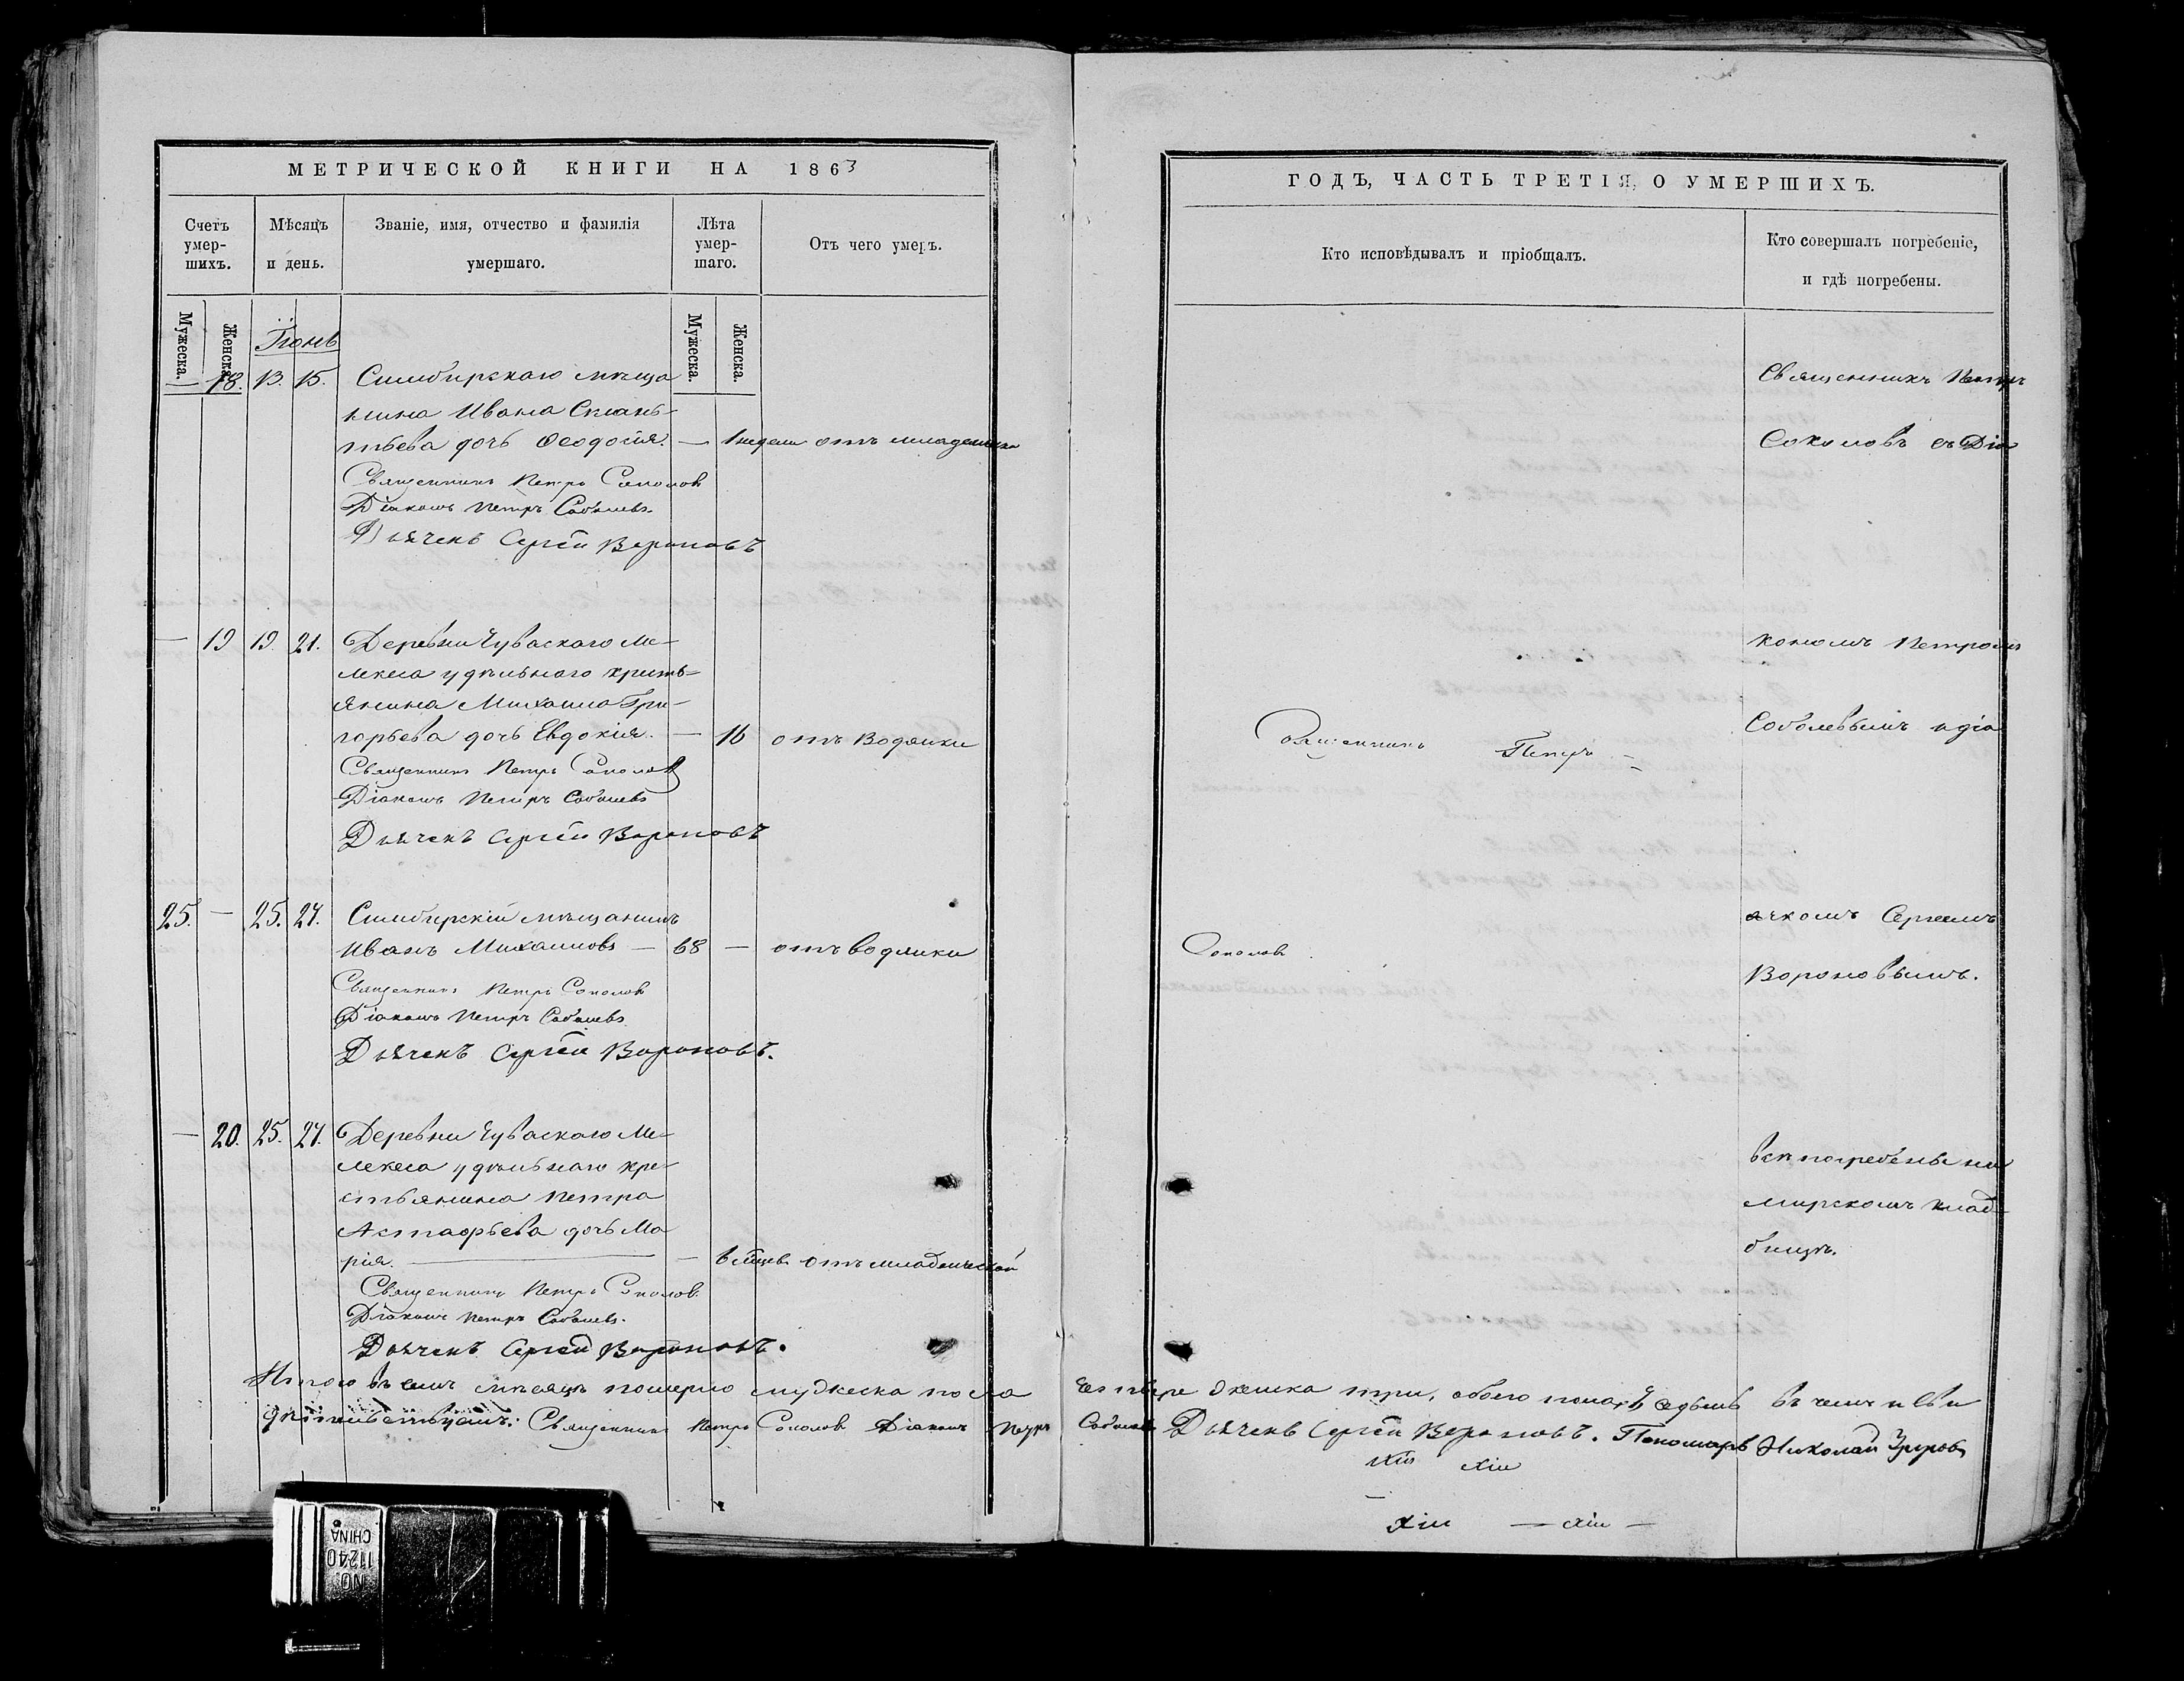 МЕТРИЧЕСКОЙ КНИГИ НА 1863
Счетъ умер-шихъ.
Мѣсяцъ и день.
Званіе, имя, отчество и фамилія умершаго.
Лѣта умер-шаго.
Отъ чего умеръ.
Мужеска.
Женска.
Мужеска.
Женска.
Іюнь
— 18. 13. 15. Симбирскаго мѣща
нина Ивана
тьева дочь Ѳеодосія. — 1 недели отъ младенческа
Священникъ Петръ Соколовъ
Діаконъ Петръ Соболевъ.
Дьячекъ Сергѣй Вороновъ
— 19 19. 21. Деревни Чуваскаго Ме-
лекеса удѣльнаго кресть-
янина Михаила Гри-
горьева дочь Евдокія. — 16 отъ водянки
Священникъ Петръ Соколовъ
Діаконъ Петръ Соболевъ
Дьячекъ Сергѣй Вороновъ
25. — 25. 27. Симбирскій мѣщанинъ
Иванъ Михаиловъ — 68 — отъ водянки
Священникъ Петръ Соколовъ
Діаконъ Петръ Соболевъ
Дьячекъ Сергѣй Вороновъ.
— 20. 25. 27. Деревни Чуваскаго Ме-
лекеса удѣльнаго кре-
стьянина Петра
Астафьева дочь Ма
рія. — 6 мѣсец. отъ младенческой
Священникъ Петръ Соколовъ.
Діаконъ Петръ Соболевъ.
Дьячекъ Сергѣй Вороновъ.
Итого въ семъ мѣсяцѣ померло мужеска пола
дѣтельствуемъ: Священникъ Петръ Соколовъ Діаконъ Петръ
ГОДЪ, ЧАСТЬ ТРЕТІЯ, О УМЕРШИХЪ.
Кто исповѣдывалъ и пріобщалъ.
Кто совершалъ погребеніе, и гдѣ погребены.
Священникъ Петръ
Соколовъ съ Діа
кономъ Петромъ
Священникъ Петръ
Соболевымъ и дьа
ячкомъ Сергеемъ
Соколовъ
Вороновымъ.
всѣ погребены на
мирскомъ клад-
бищѣ.
четыре женска три, обоего пола седьмь въ чемъ и сви
Соболевъ Дьячекъ Сергѣй Вороновъ. Пономарь Николай